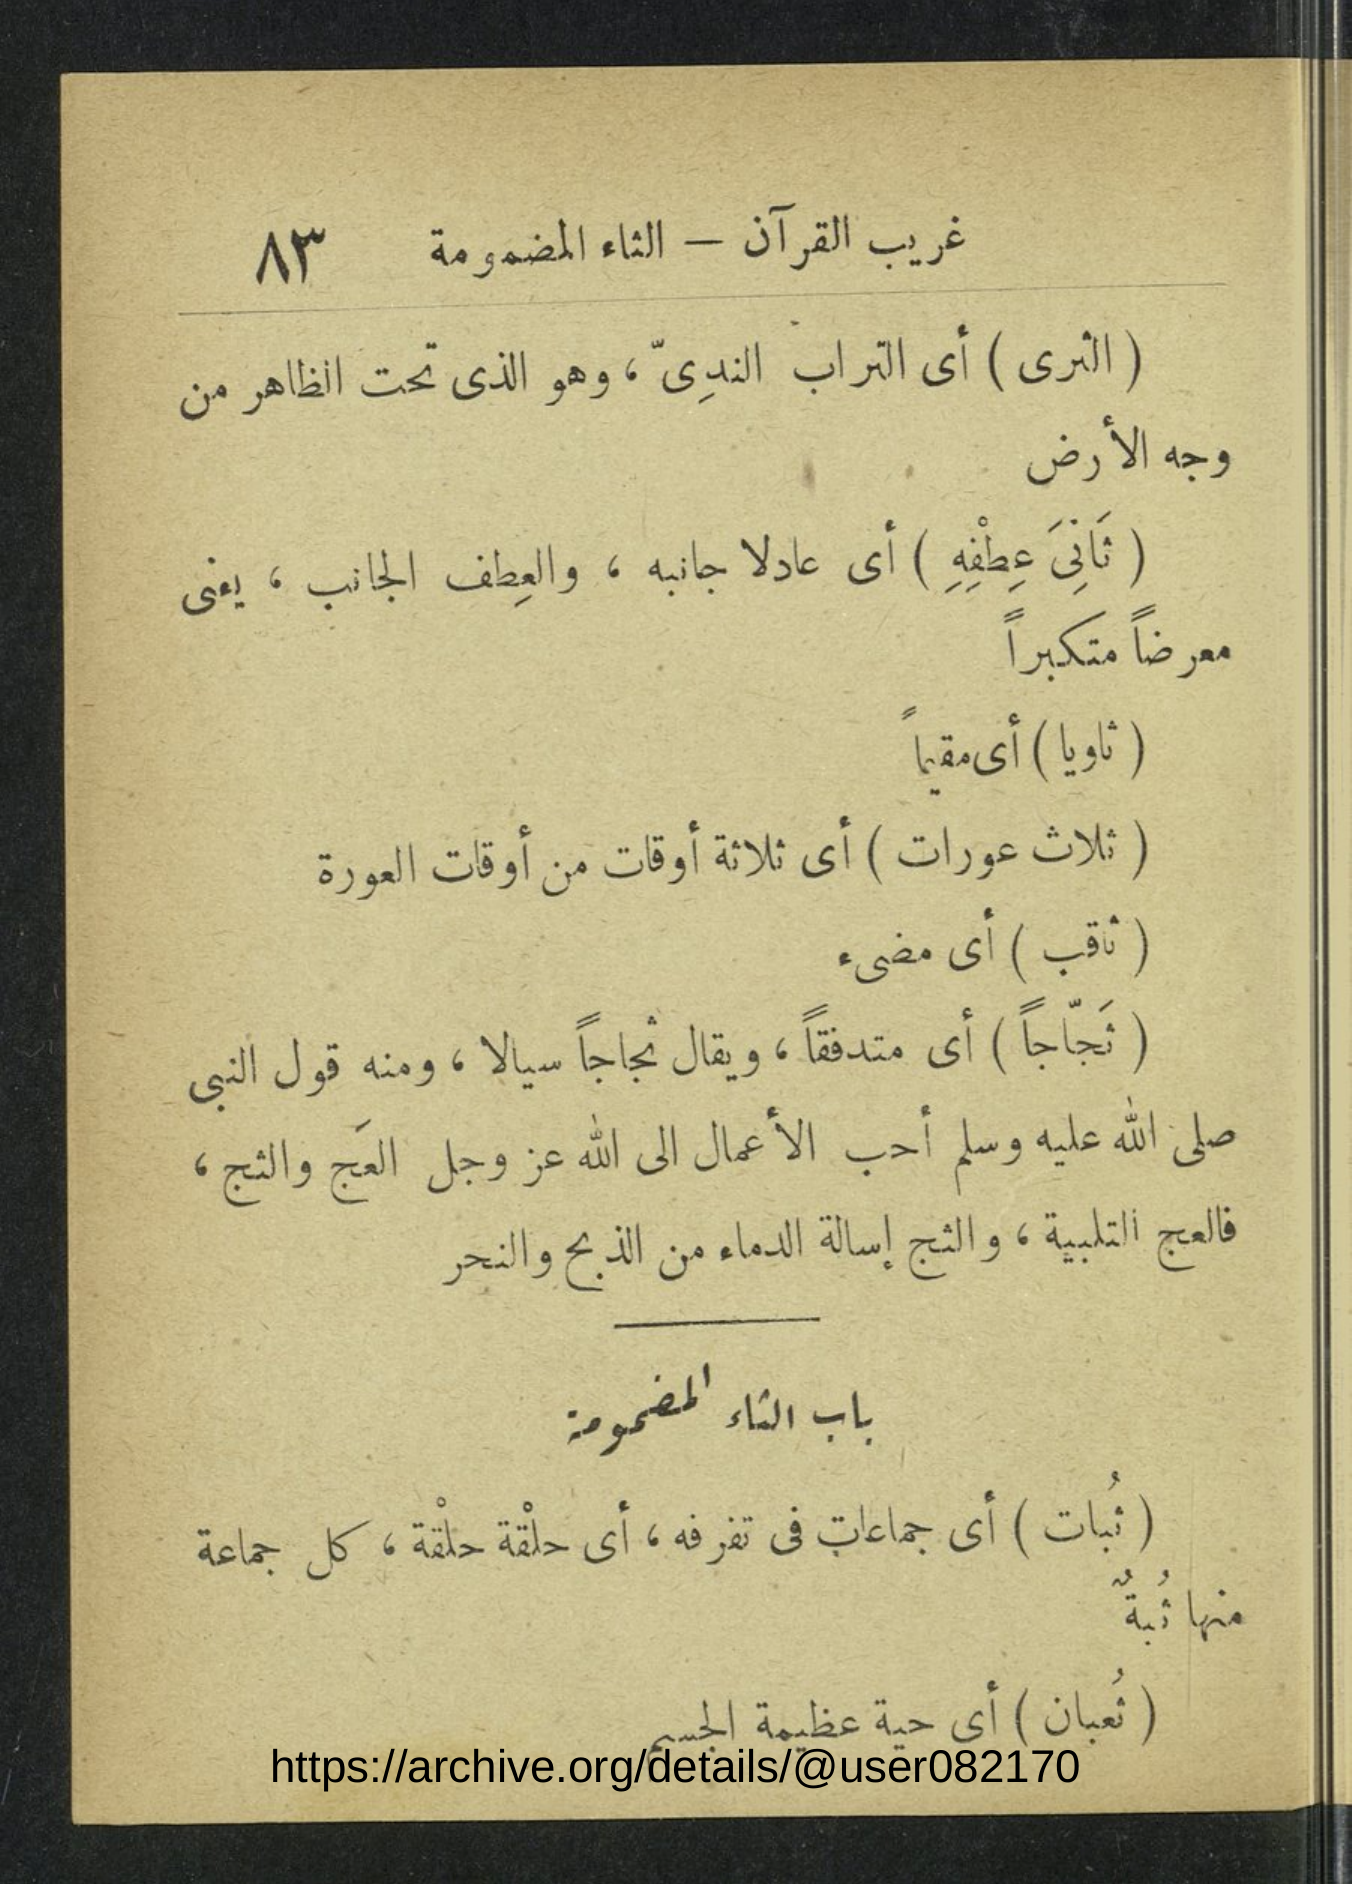 غريب القرآن — الثاء المضمومة ٨٣
( الثرى ) أى التراب الندِىّ ، وهو الذى تحت الظاهر من
وجه الأرض
( ثَانِىَ عِطْفِهِ ) أى عادلا جانبه ، والعِطف الجانب ، يعنى
معرضاً متكبراً
( ثاويا ) أى مقيماً
( ثلاث عورات ) أى ثلاثة أوقات من أوقات العورة
( ثاقب ) أى مضىء
( ثَجّاجاً ) أى متدفقاً ، ويقال ثجاجاً سيالا ، ومنه قول النبى
صلى الله عليه وسلم أحب الأعمال الى الله عز وجل العَج والثج ،
فالعج التلبية ، والثج إسالة الدماء من الذبح والنحر
باب الثاء المضمومة
( ثُبات ) أى جماعات فى تفرقه ، أى حلْقة حلْقة ، كل جماعة
منها ثُبةٌ
( ثُعبان ) أى حية عظيمة الجسم
https://archive.org/details/@user082170